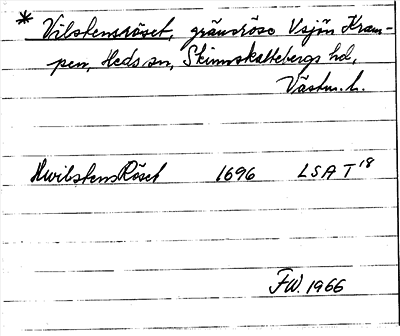 * Vilstensröset, gränsröse V sjön Kram-
pen, Heds sn, Skinnskattebergs hd,
Västm. l.
HwilstensRöset 1696 LSA T 18
FW. 1966